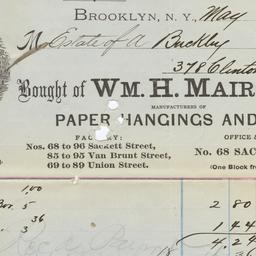 BROOKLYN, N.Y., May
M Estate of A Buckley
378 Clinton
Bought of WM. H. MAIR
MANUFACTURERS OF
PAPER HANGINGS AND
FACTORY:
OFFICE &
Nos. 68 to 96 Sackett Street,
85 to 95 Van Brunt Street,
No. 68 SAC
69 to 89 Union Street.
(One Block from
1,00
Bor. 5 2 80
36
3 1 44
4.24